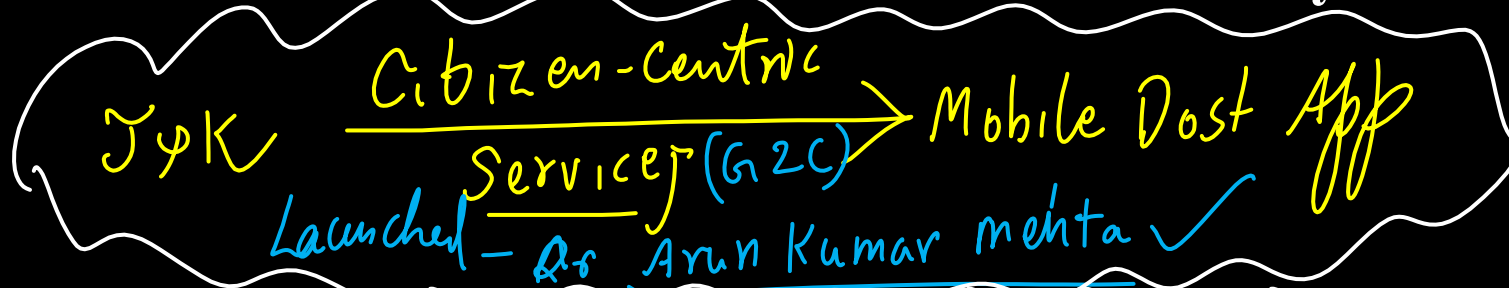 J&K Citizen-Centric Services (G2C) Mobile Dost App
Launched - Dr Arun Kumar mehta